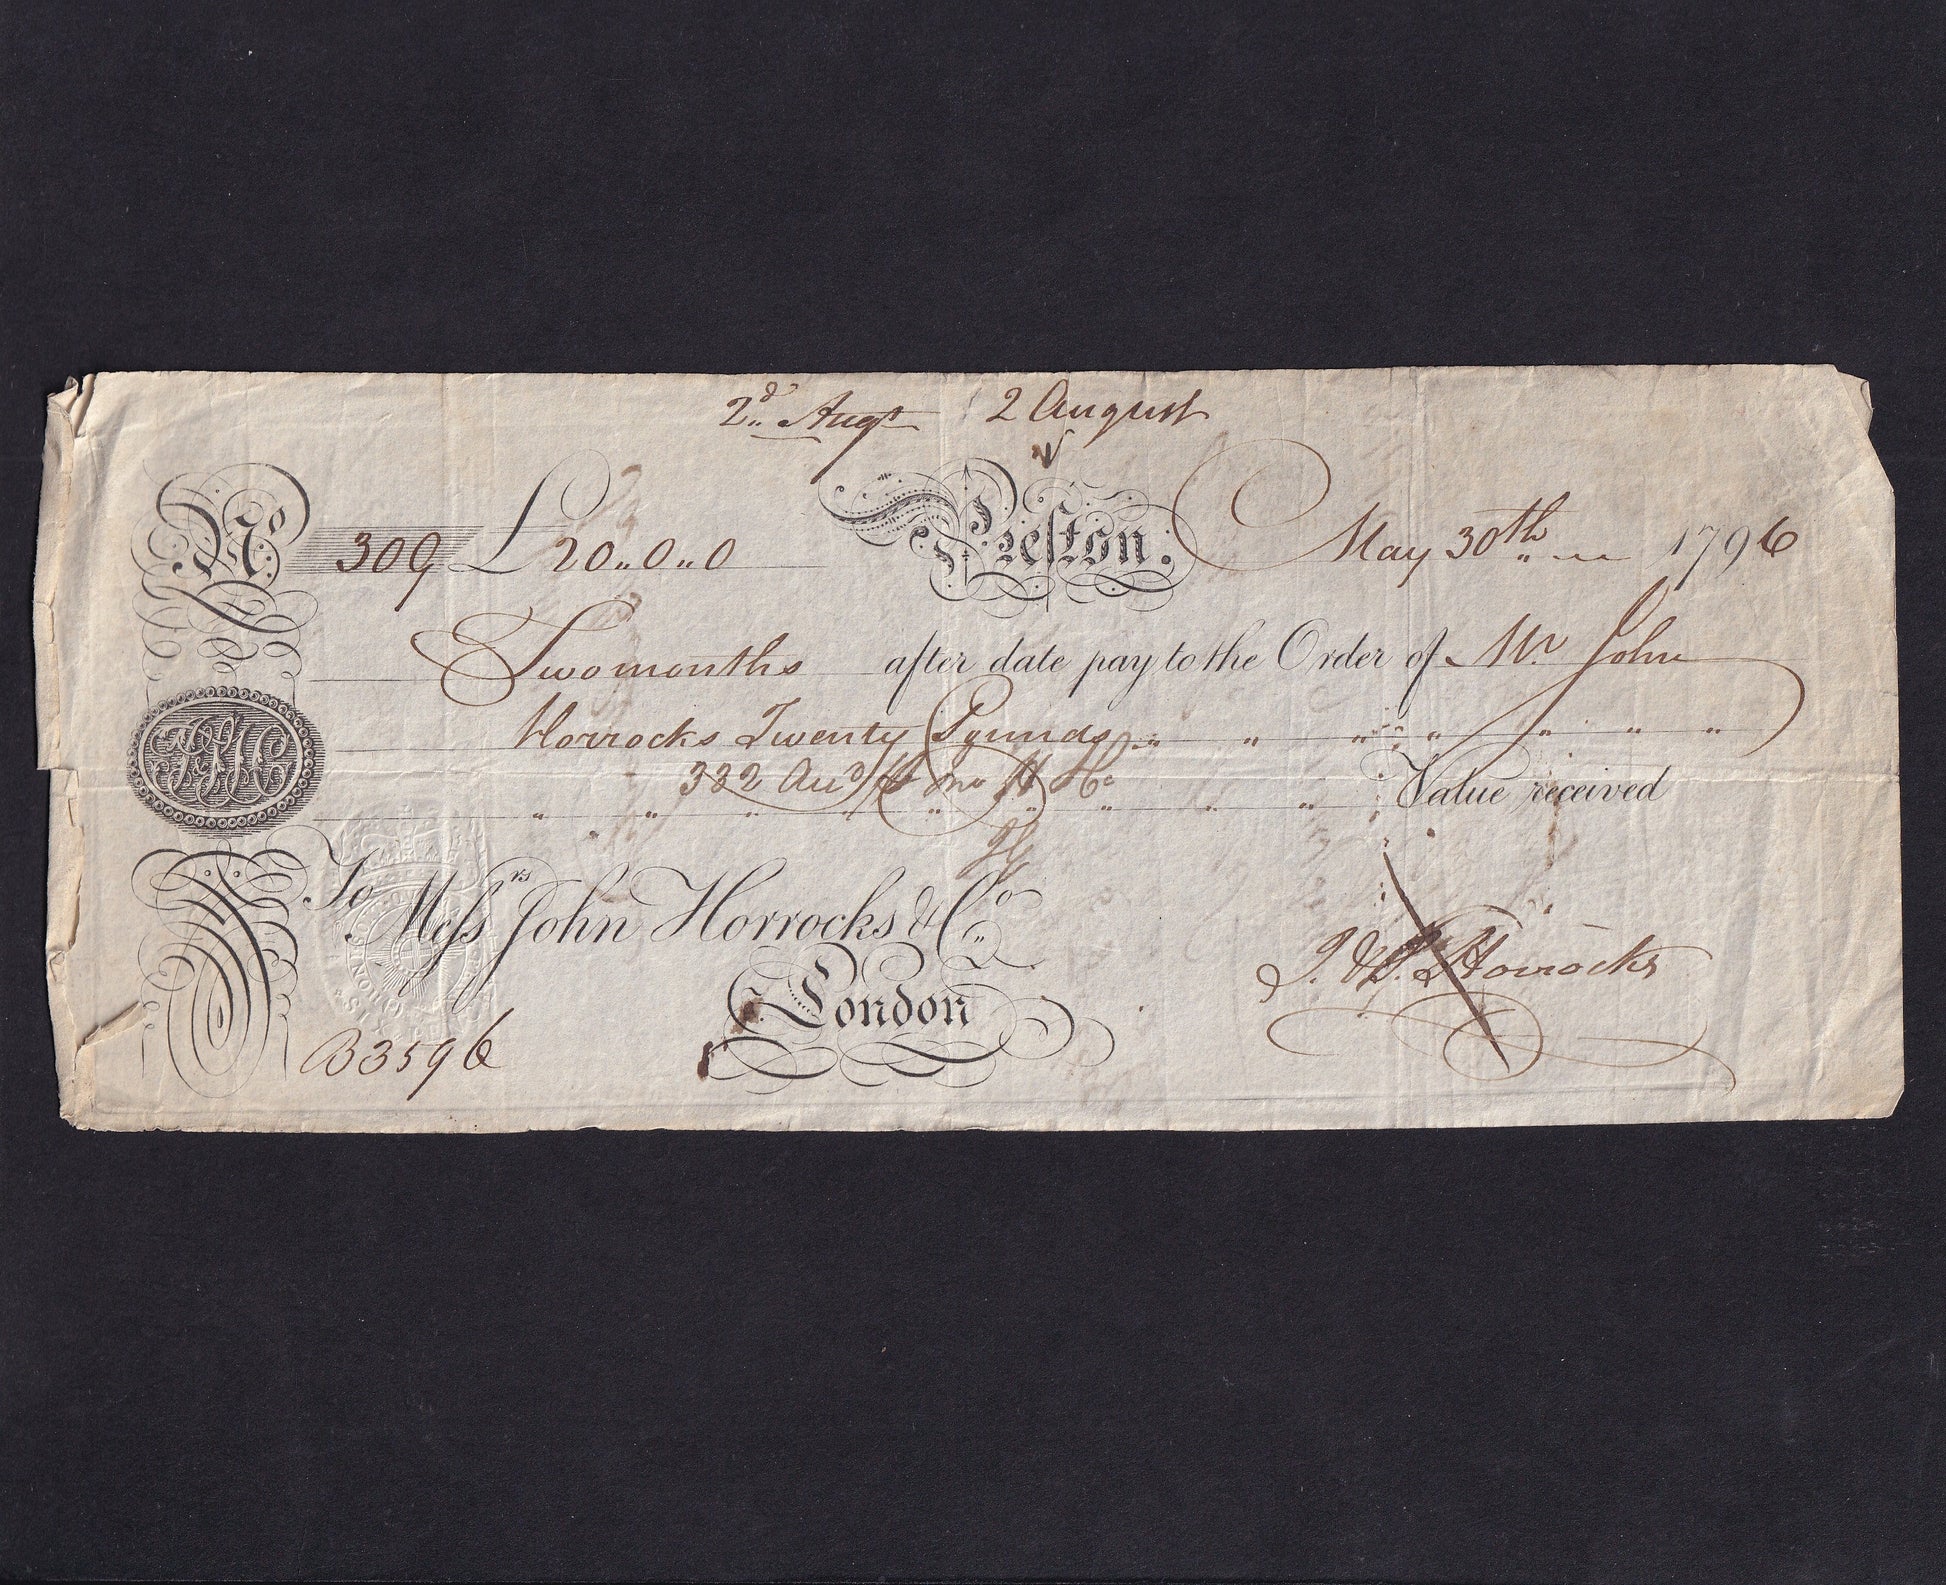 2d.. Augt 2 August
No 309 £20..0..0 Preston. May 30th.. 1796
Two months after date pay to the Order of Mr. John
Horrocks Twenty Pounds.. " " " " " "
" " " " " " " " Value received
To Messrs John Horrocks & Co..
London
J. & S. Horrocks
B3596